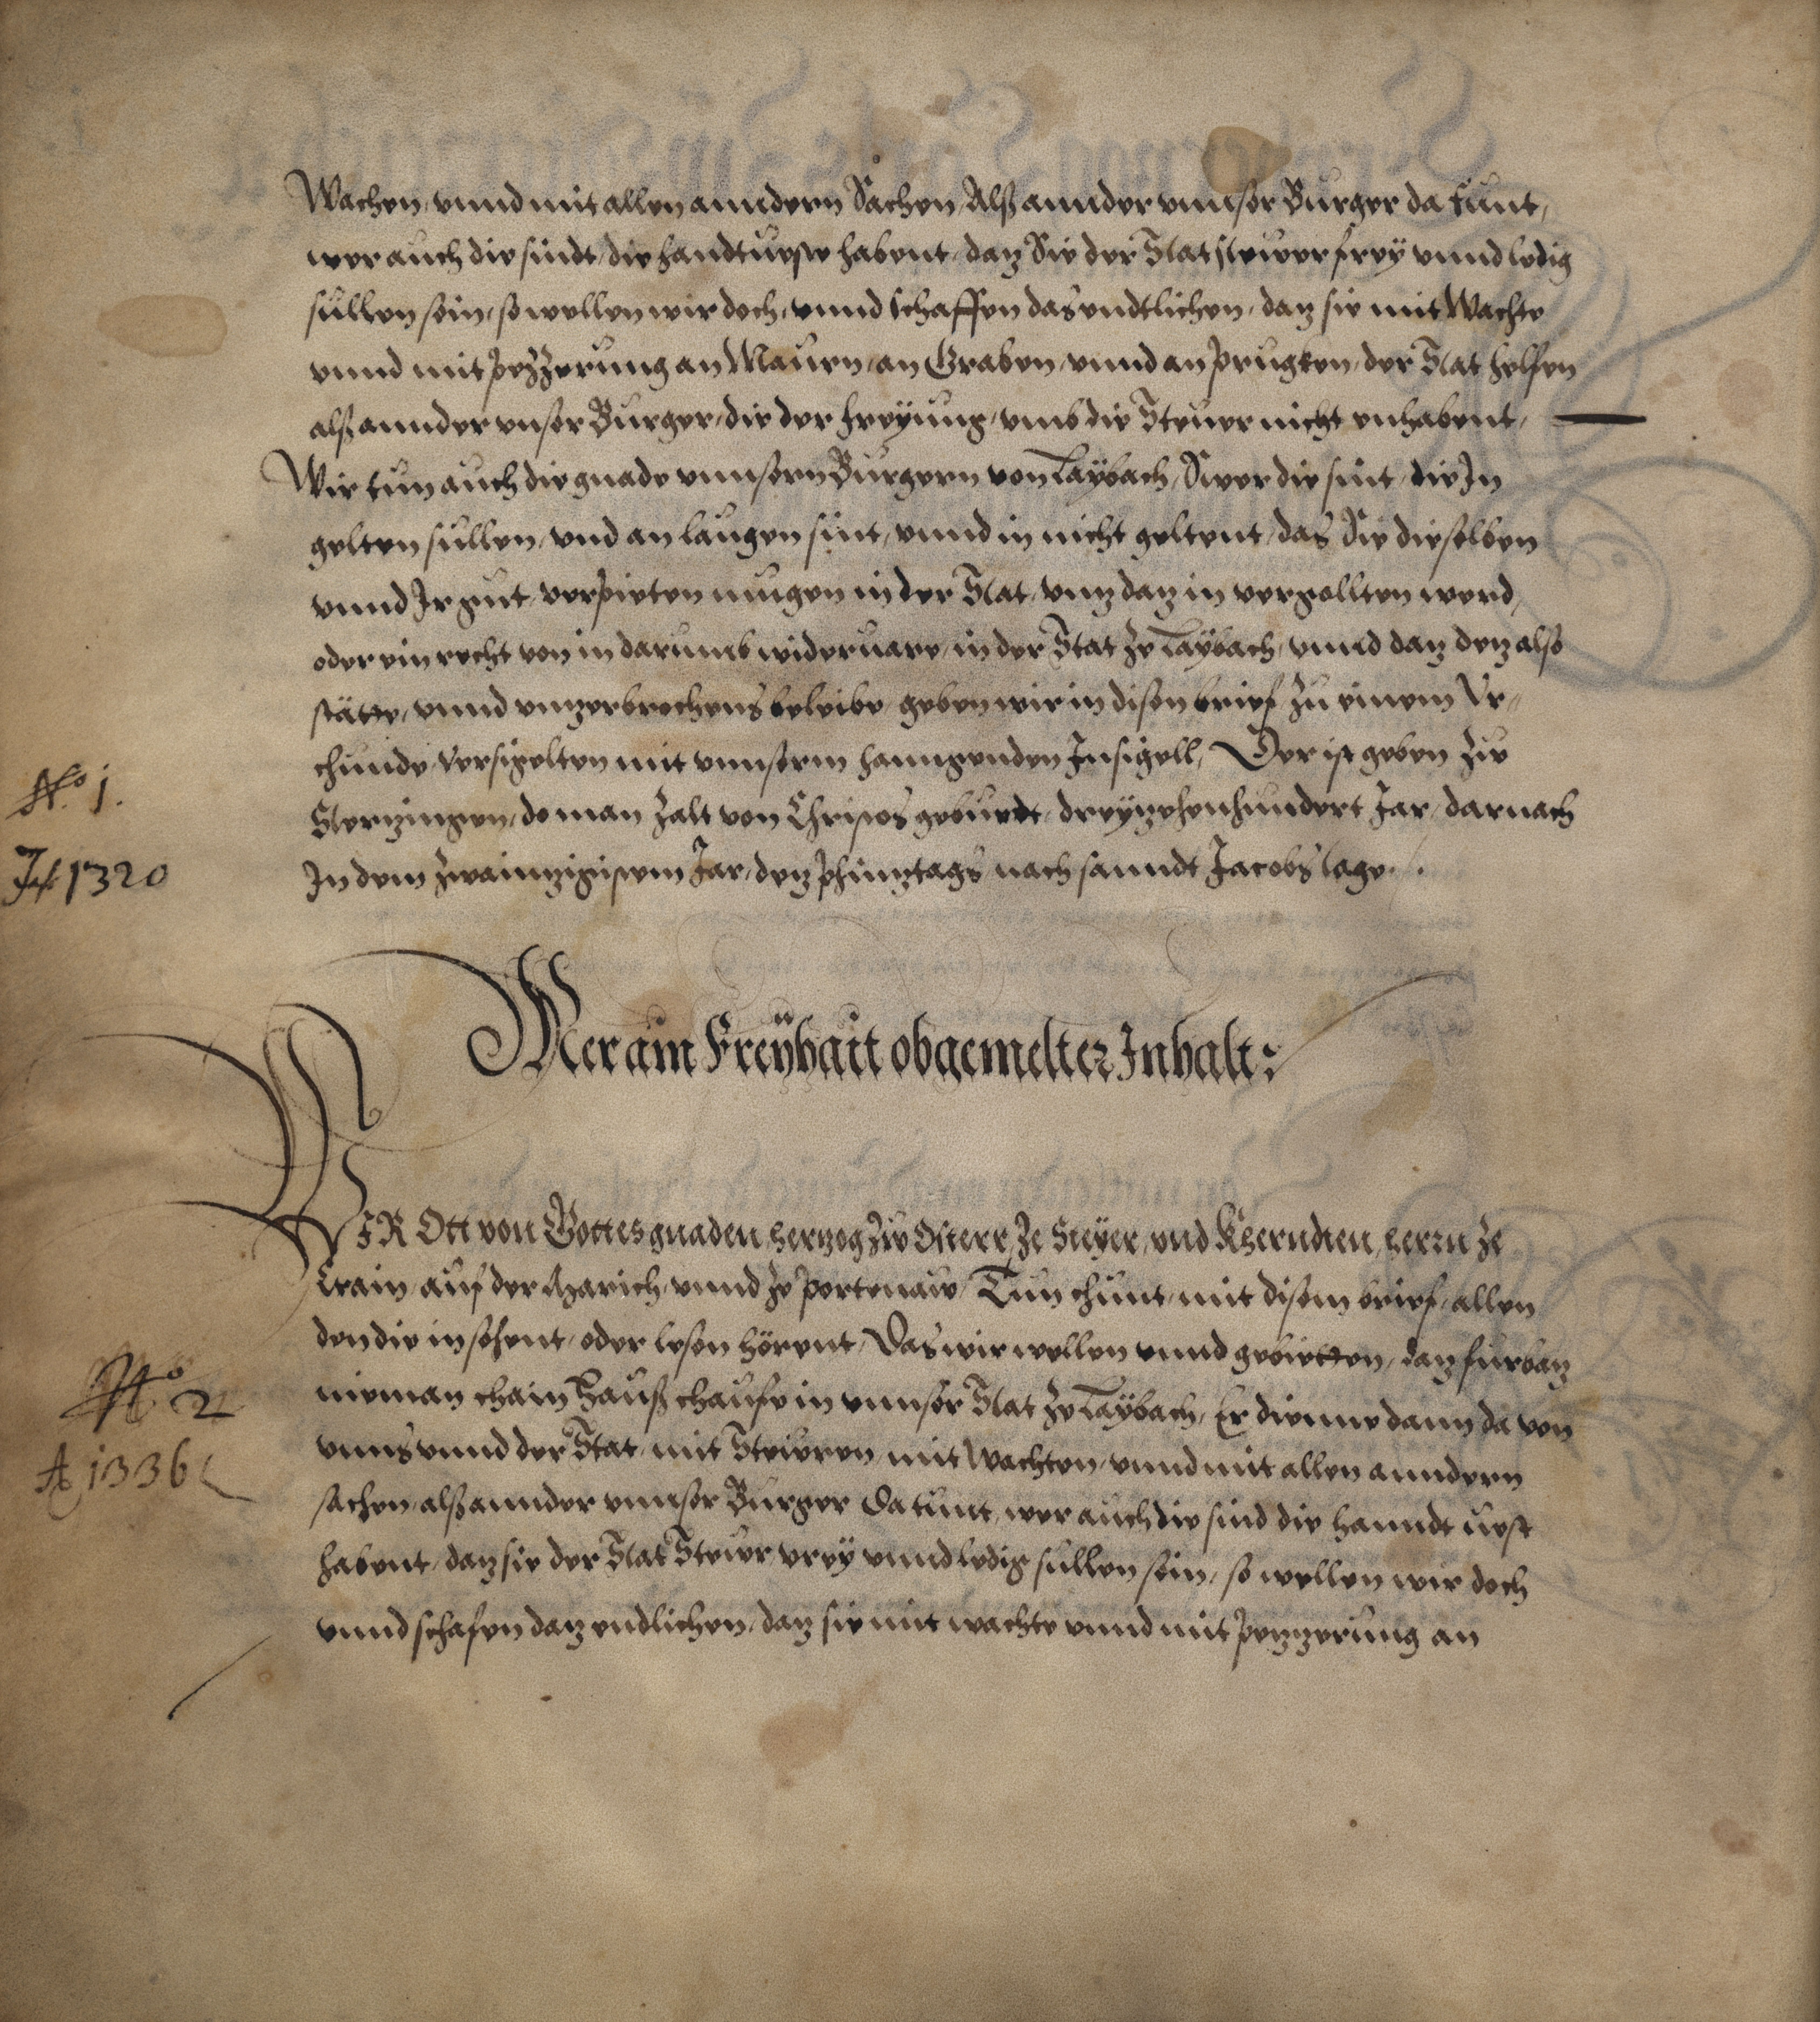 Wachen, vnnd mit allen anndern Sachen, Alß annder vnnser Burger da tunt,
wer auch die sindt, die handtueste habent, daz Sie der Stat stewer freÿ vnnd ledig
sullen sein, so wellen wir doch, vnnd schaffen das endtlichen, daz sie mit Wachte
vnnd mit pezzerung an Maurn, an Graben, vnnd an prugken, der Stat helfen
alß annder vnser Burger, die der freÿung, vmb die Steuer nicht enhabent,
Wir tun auch die gnade vnnsern Burgern von Laÿbach, Swer die sint, die In
gelten sullen, vnd an laugen sint, vnnd in nicht geltent, das Sie dieselben
vnnd Ir gut, verpieten mugen in der Stat, vnz daz in vergollten werd,
oder ein recht von in darumb wideruare, in der Stat ze Laÿbach, vnnd daz dez also
stätte, vnnd vnzerbrochens beleibe, geben wir in disen brief zu einem Vr-
chunde Versigelten mit vnnserm hanngenden Insigell, Der ist geben Zue
Sterzingen, do man Zalt von Christes geburdt, dreÿzehenhundert Jar, darnach
In dem Zwainzigistem Jar, dez Phinztags nach sanndt Jacobs tage.
No 1.
1320
Mer ain Freÿhait obgemelter Inhalt:
WIR Ott von Gottes gnaden, herzog Zue Osterr, Ze Steÿer, vnd Kherndten, herrn Ze
Crain, auf der Marich, vnnd Ze Portenaw, Tun chunt, mit disem brief, allen
den die in sehent, oder lesen hörent, Das wir wellen vnnd gebietten, daz furbaz
nieman chain Hauß chaufe in vnnser Stat Ze Laÿbach, Er dienne dann da von
vnns vnnd der Stat, mit Stewren, mit wachten, vnnd mit allen anndern
sachen, alß annder vnnser Burger Da tunt, wer auch die sind die hanndtuest
habent, daz sie der Stat Stewr, vreÿ vnnd ledig sullen sein, so wellen wir doch
vnnd schafen daz endlichen, daz sie mit wachte vnnd mit pezzerung an
No 2
A 1336